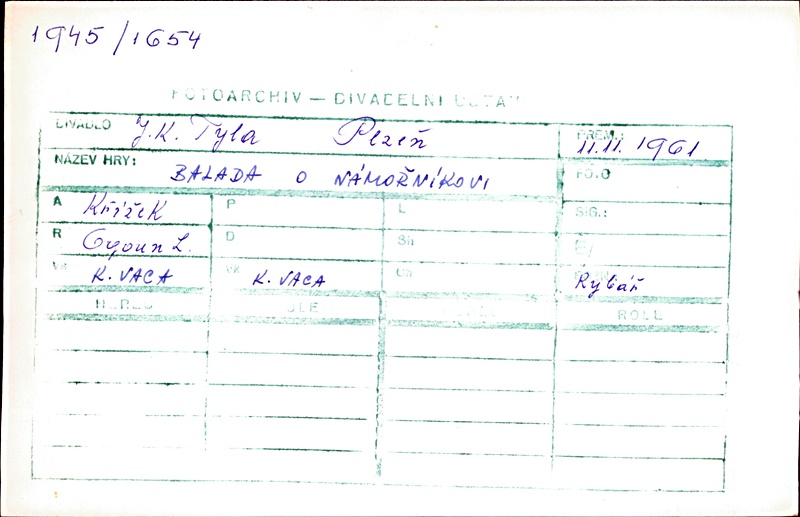 1945/1654
FOTOARCHIV — DIVADELNÍ ÚSTAV
DIVADLO J.K. Tyla Plzeň PREM.: 11.11.1961
NÁZEV HRY: BALADA O NÁMOŘNÍKOVI
A Křížek P L SIG.:
R L. D Sh
K. VACA Vk K. VACA Ch Rybář
HEREC ROLE ROLE